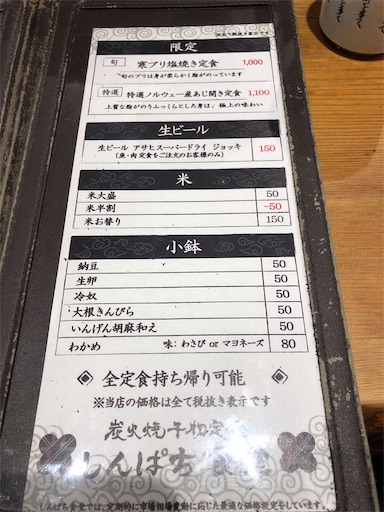 ※全て税抜き表示です
限定
旬 寒ブリ塩焼き定食 1,000
旬のブリは身が柔らかく脂がのっています
特選 特選ノルウェー産あじ開き定食 1,100
上質な脂がのりふっくらとした身は、極上の味わい
生ビール
生ビール アサヒスーパードライ ジョッキ 150
(魚・肉定食をご注文のお客様のみ)
米
米大盛 50
米半割 -50
米お替り 150
小鉢
納豆 50
生卵 50
冷奴 50
大根きんぴら 50
いんげん胡麻和え 50
わかめ 味:わさび or マヨネーズ 80
全定食持ち帰り可能
※当店の価格は全て税抜き表示です
炭火焼干物定
しんぱち食堂
しんぱち食堂では、定期的に市場相場変動に応じた最適な価格設定をしています。